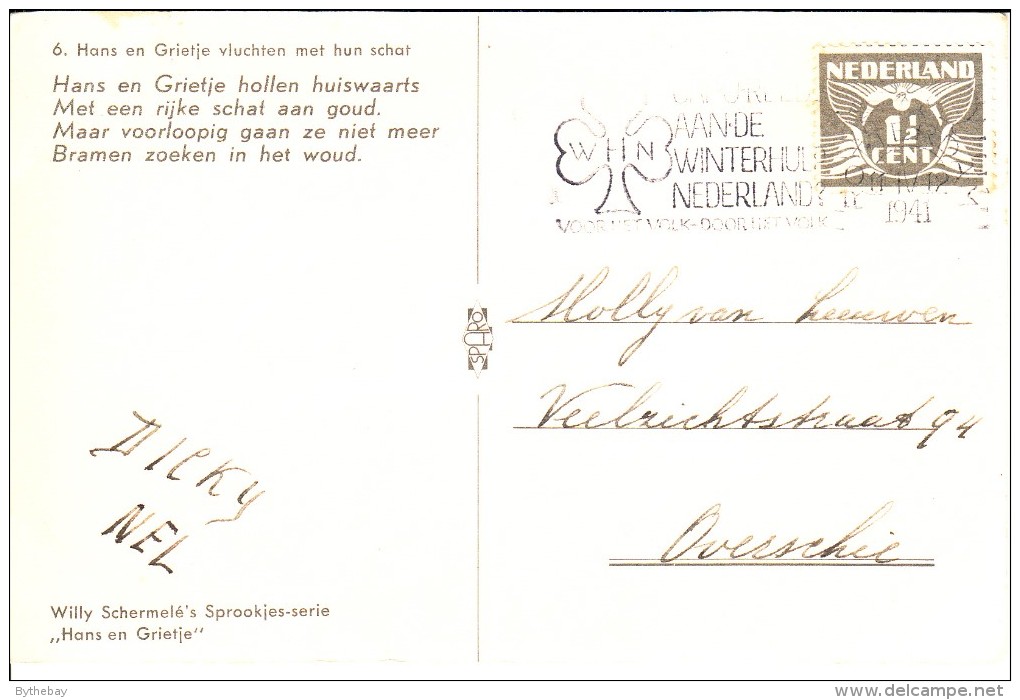 6. Hans en Grietje vluchten met hun schat
Hans en Grietje hollen huiswaarts
Met een rijke schat aan goud.
Maar voorloopig gaan ze niet meer
Bramen zoeken in het woud.
NEDERLAND
1½
CENT
W H N
AAN·DE
WINTERHULP
NEDERLAND?
VOOR HET VOLK-DOOR HET VOLK
1941
SPARO
Molly van Leeuwen
Veelzichtstraat 94
Overschie
DICKY
NEL
Willy Schermelé's Sprookjes-serie
„Hans en Grietje"
Bythebay
www.delcampe.net